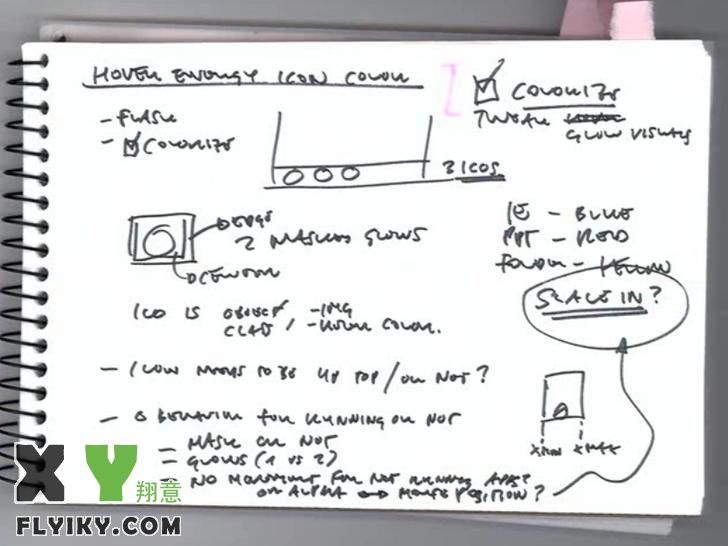 HOVER ENERGY ICON COLOR
- FLASH
- COLORIZE
COLORIZE
TWEAK
GLOW VISUALS
3 ICOS
IE - BLUE
PPT - RED
FOLDER - YELLOW
EDGE
2 MASKED GLOWS
CENTER
ICO IS OBJECT - IMG
CLASS / - HOVER COLOR.
SCALE IN?
- ICON NEEDS TO BE UP TOP / OR NOT?
- BEHAVIOR FOR RUNNING OR NOT
= MASK OR NOT
= GLOWS (1 VS 2)
= NO MOVEMENT FOR NOT RUNNING APPS?
OR ALPHA ↔ MOUSE POSITION?
XMIN XMAX
XY 翔意
FLYIKY.COM